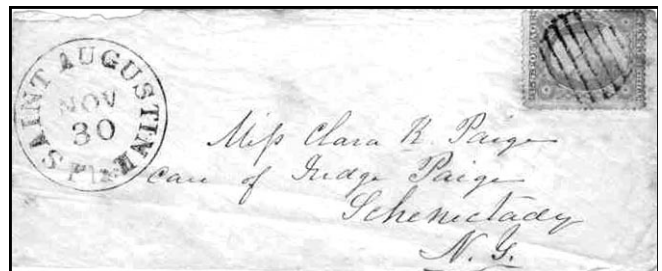 SAINT AUGUSTINE
NOV
30
Miſs Clara K. Paige
care of Judge Paige
Schenectady
N. Y.